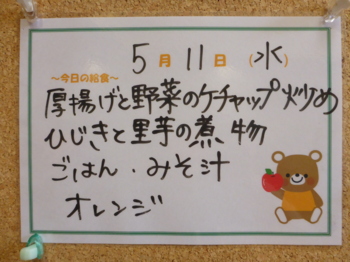 5月11日(水)
～今日の給食～
厚揚げと野菜のケチャップ炒め
ひじきと里芋の煮物
ごはん・みそ汁
オレンジ